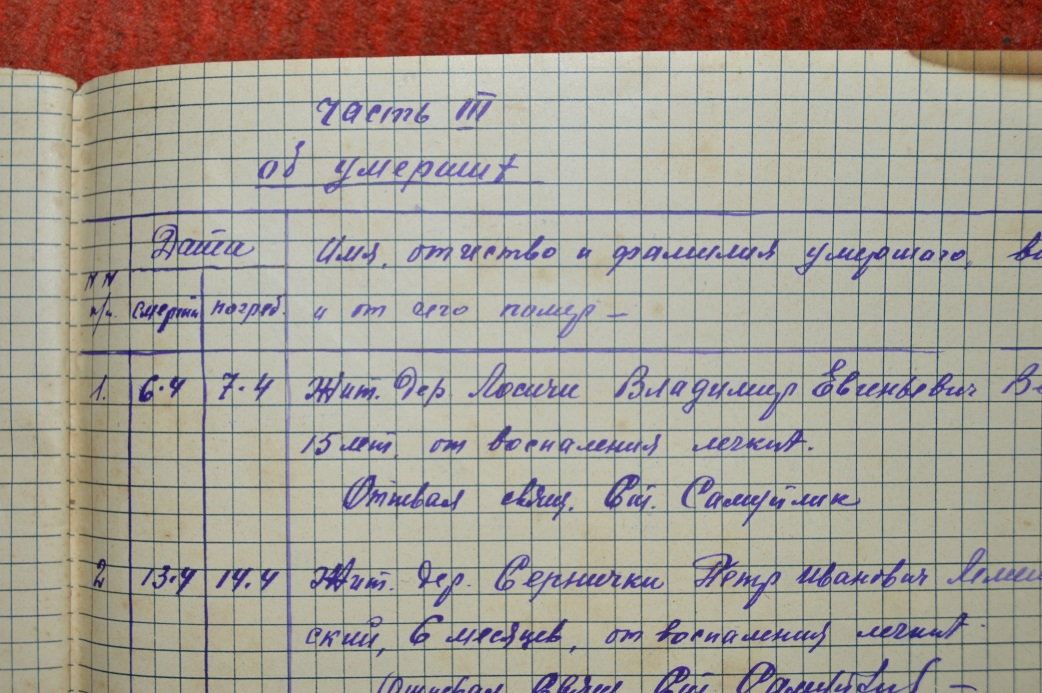 Часть III
об умерших
NN п/п. Дата Имя, отчество и фамилия умершего, во
смерти погреб. и от чего помер –
1. 6.4 7.4 Жит. дер. Лосичи Владимир Евгеньевич
15 лет, от воспаления легких.
Отпевал свящ. Ст. Самуйлик
2 13.4 14.4 Жит. дер. Сернички Петр Иванович
ский, 6 месяцев, от воспаления легких.
Отпевал свящ. Ст. Самуйлик –